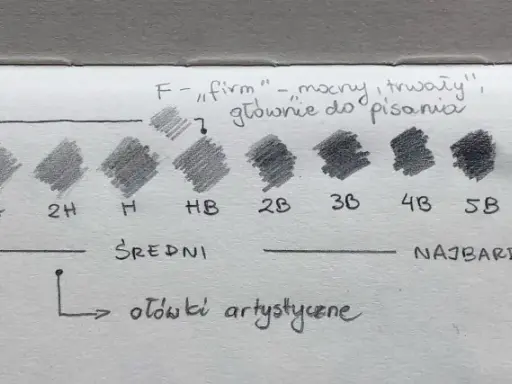 F – „firm” – „mocny, trwały”,
głównie do pisania
2H H HB 2B 3B 4B 5B
ŚREDNI NAJBARD
ołówki artystyczne